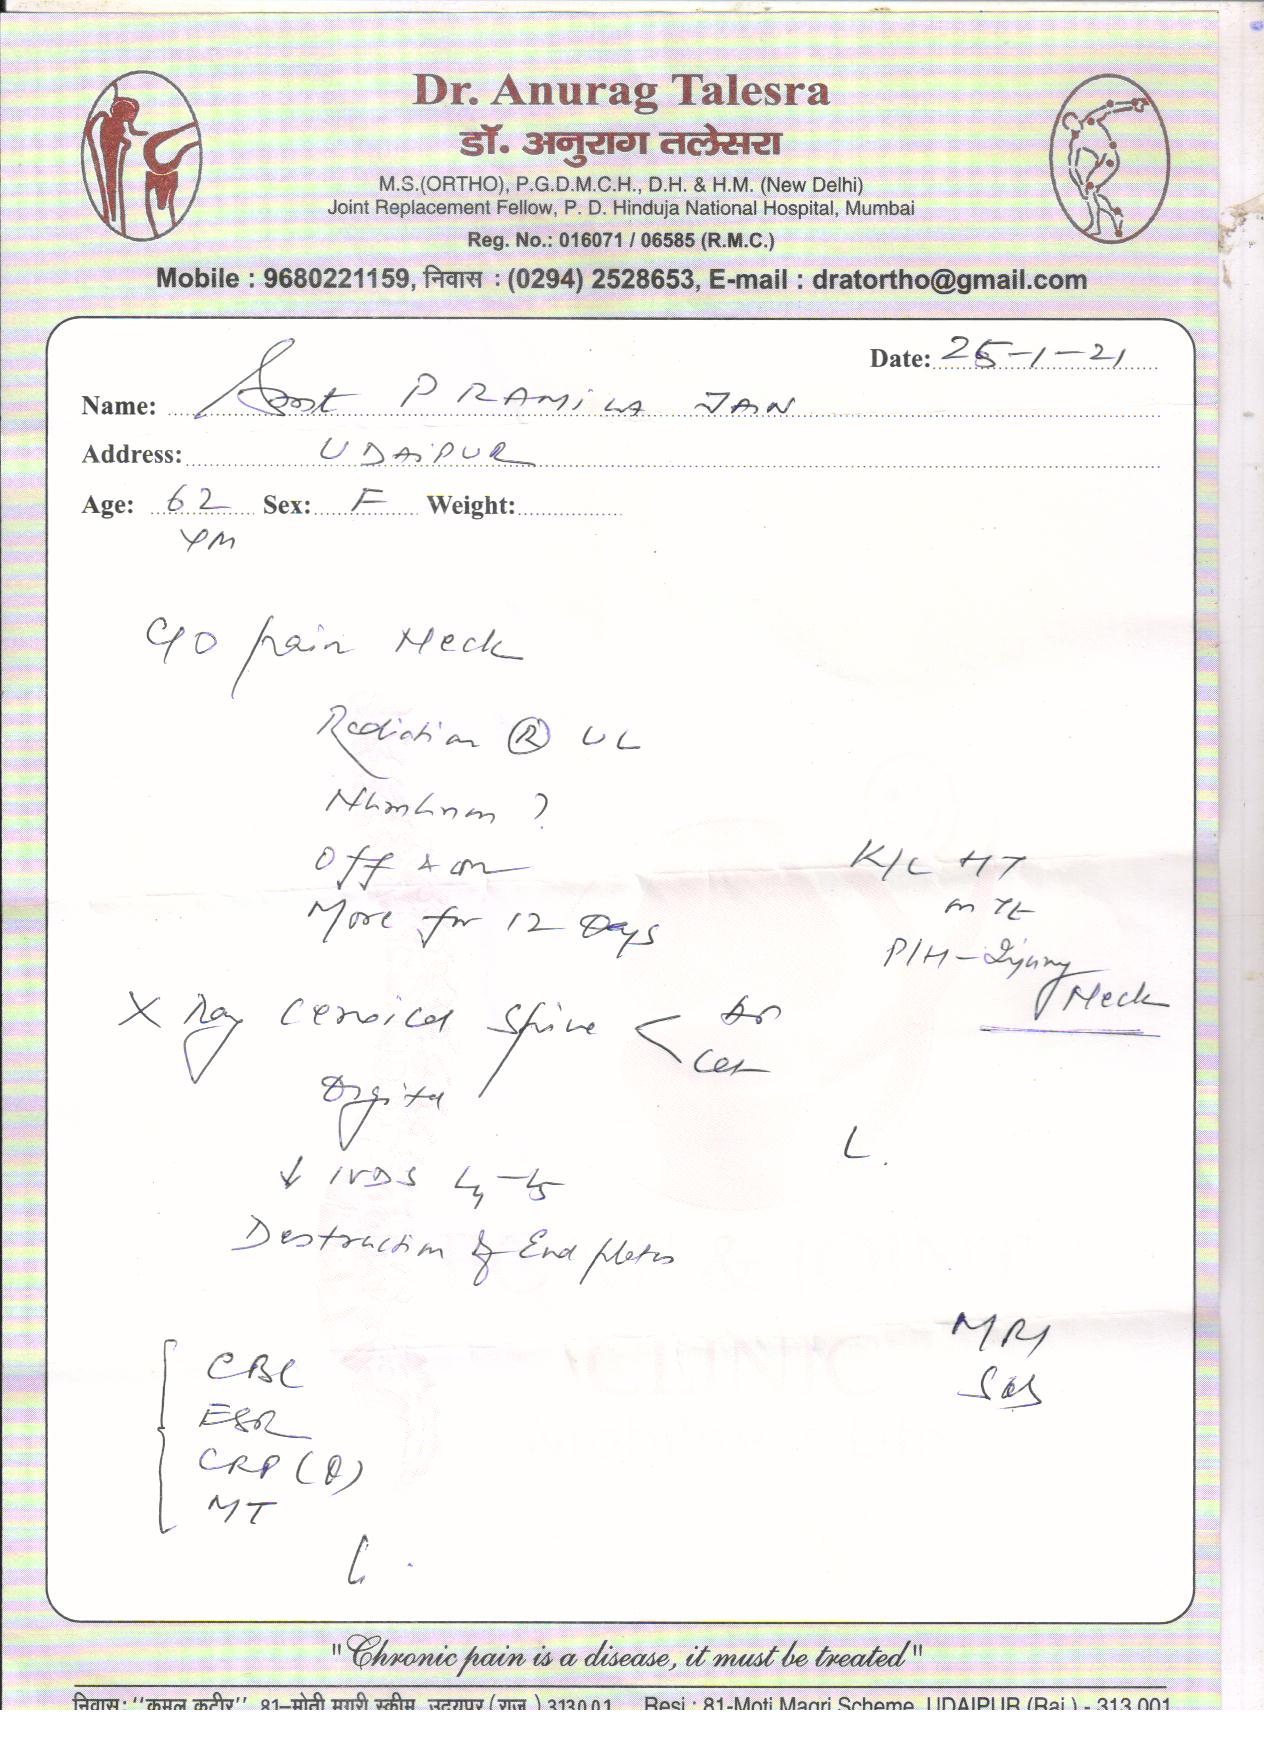 Dr. Anurag Talesra
डॉ. अनुराग तलेसरा
M.S.(ORTHO), P.G.D.M.C.H., D.H. & H.M. (New Delhi)
Joint Replacement Fellow, P. D. Hinduja National Hospital, Mumbai
Reg. No.: 016071 / 06585 (R.M.C.)
Mobile : 9680221159, निवास : (0294) 2528653, E-mail : dratortho@gmail.com
Date: 25-1-21
Name: Smt PRAMILA JAN
Address: UDAIPUR
Age: 62 Sex: F Weight:
C/O pain Neck
Radiation (R) UL
Numbness ?
Off & on
More for 12 Days
K/C HT
on Tt
P/H - Injury
Neck
X Ray Cervical Spine < AP
Lat
Digital
↓ IVDS
Destruction of End plates
MRI
SOS
CBC
ESR
CRP (Q)
MT
"Chronic pain is a disease, it must be treated"
निवास: "कमल कुटीर" 81-मोती मगरी स्कीम, उदयपुर (राज.) 313001 Resi : 81-Moti Magri Scheme, UDAIPUR (Raj.) - 313 001